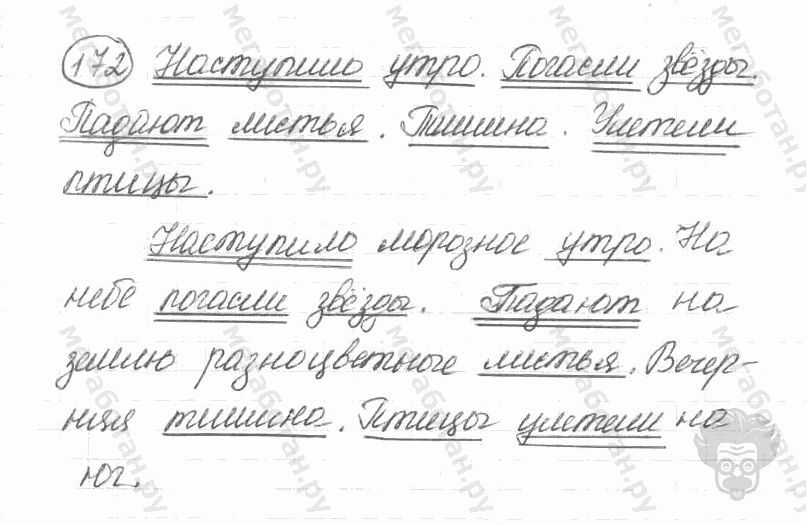 172 Наступило утро. Погасли звёзды.
Падают листья. Тишина. Улетели
птицы.
Наступило морозное утро. На
небе погасли звёзды. Падают на
землю разноцветные листья. Вечер-
няя тишина. Птицы улетели на
юг.
мегаботан.ру